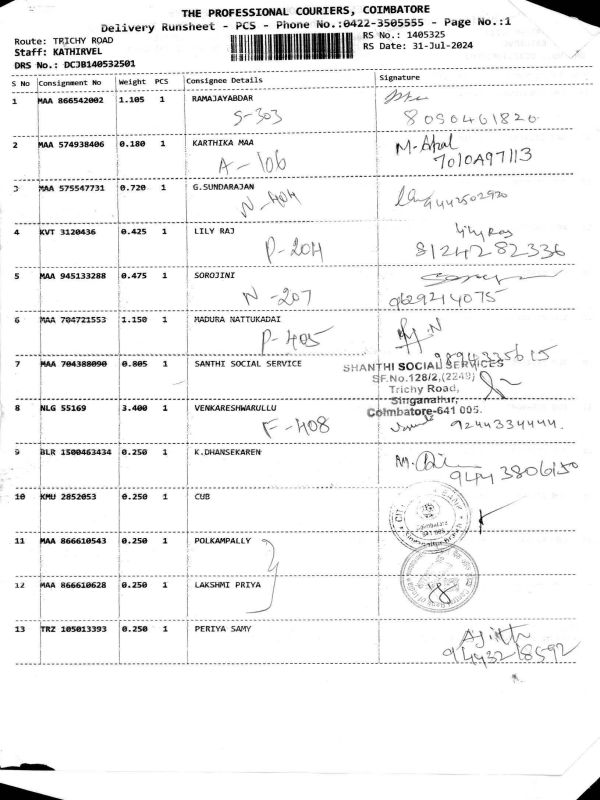 THE PROFESSIONAL COURIERS, COIMBATORE
Delivery Runsheet - PCS - Phone No.:0422-3505555 - Page No.:1
Route: TRICHY ROAD
RS No.: 1405325
Staff: KATHIRVEL
RS Date: 31-Jul-2024
DRS No.: DCJB140532501
S No Consignment No Weight PCS Consignee Details Signature
1 MAA 866542002 1.105 1 RAMAJAYABDAR
S-303 8050461820
2 MAA 574938406 0.180 1 KARTHIKA MAA
A-106 7010A97113
3 MAA 575547731 0.720 1 G.SUNDARAJAN
N-404 9442502920
4 KVT 3120436 0.425 1 LILY RAJ Lily Raj
P-204 8124282336
5 MAA 945133288 0.475 1 SOROJINI
N-207 9629214075
6 MAA 704721553 1.150 1 MADURA NATTUKADAI
P-405 9894335615
7 MAA 704388090 0.805 1 SANTHI SOCIAL SERVICE
SHANTHI SOCIAL SERVICES
SF.No.128/2,(2249)
Trichy Road,
Singanallur,
Coimbatore-641 005.
8 NLG 55169 3.400 1 VENKARESHWARULLU
F-408 9244334444.
9 BLR 1500463434 0.250 1 K.DHANSEKAREN
9443806150
10 KMU 2852053 0.250 1 CUB
11 MAA 866610543 0.250 1 POLKAMPALLY
12 MAA 866610628 0.250 1 LAKSHMI PRIYA
13 TRZ 105013393 0.250 1 PERIYA SAMY
Ajith
9443218592